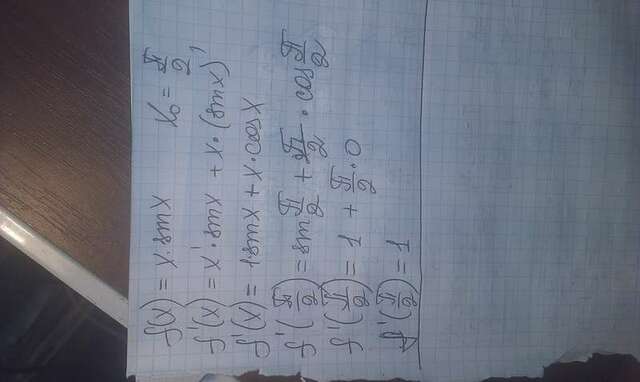 f(x) = x·sinx x₀ = π/2
f'(x) = x'·sinx + x·(sinx)'
f'(x) = 1·sinx + x·cosx
f'(π/2) = sin π/2 + π/2 · cos π/2
f'(π/2) = 1 + π/2 · 0
f'(π/2) = 1